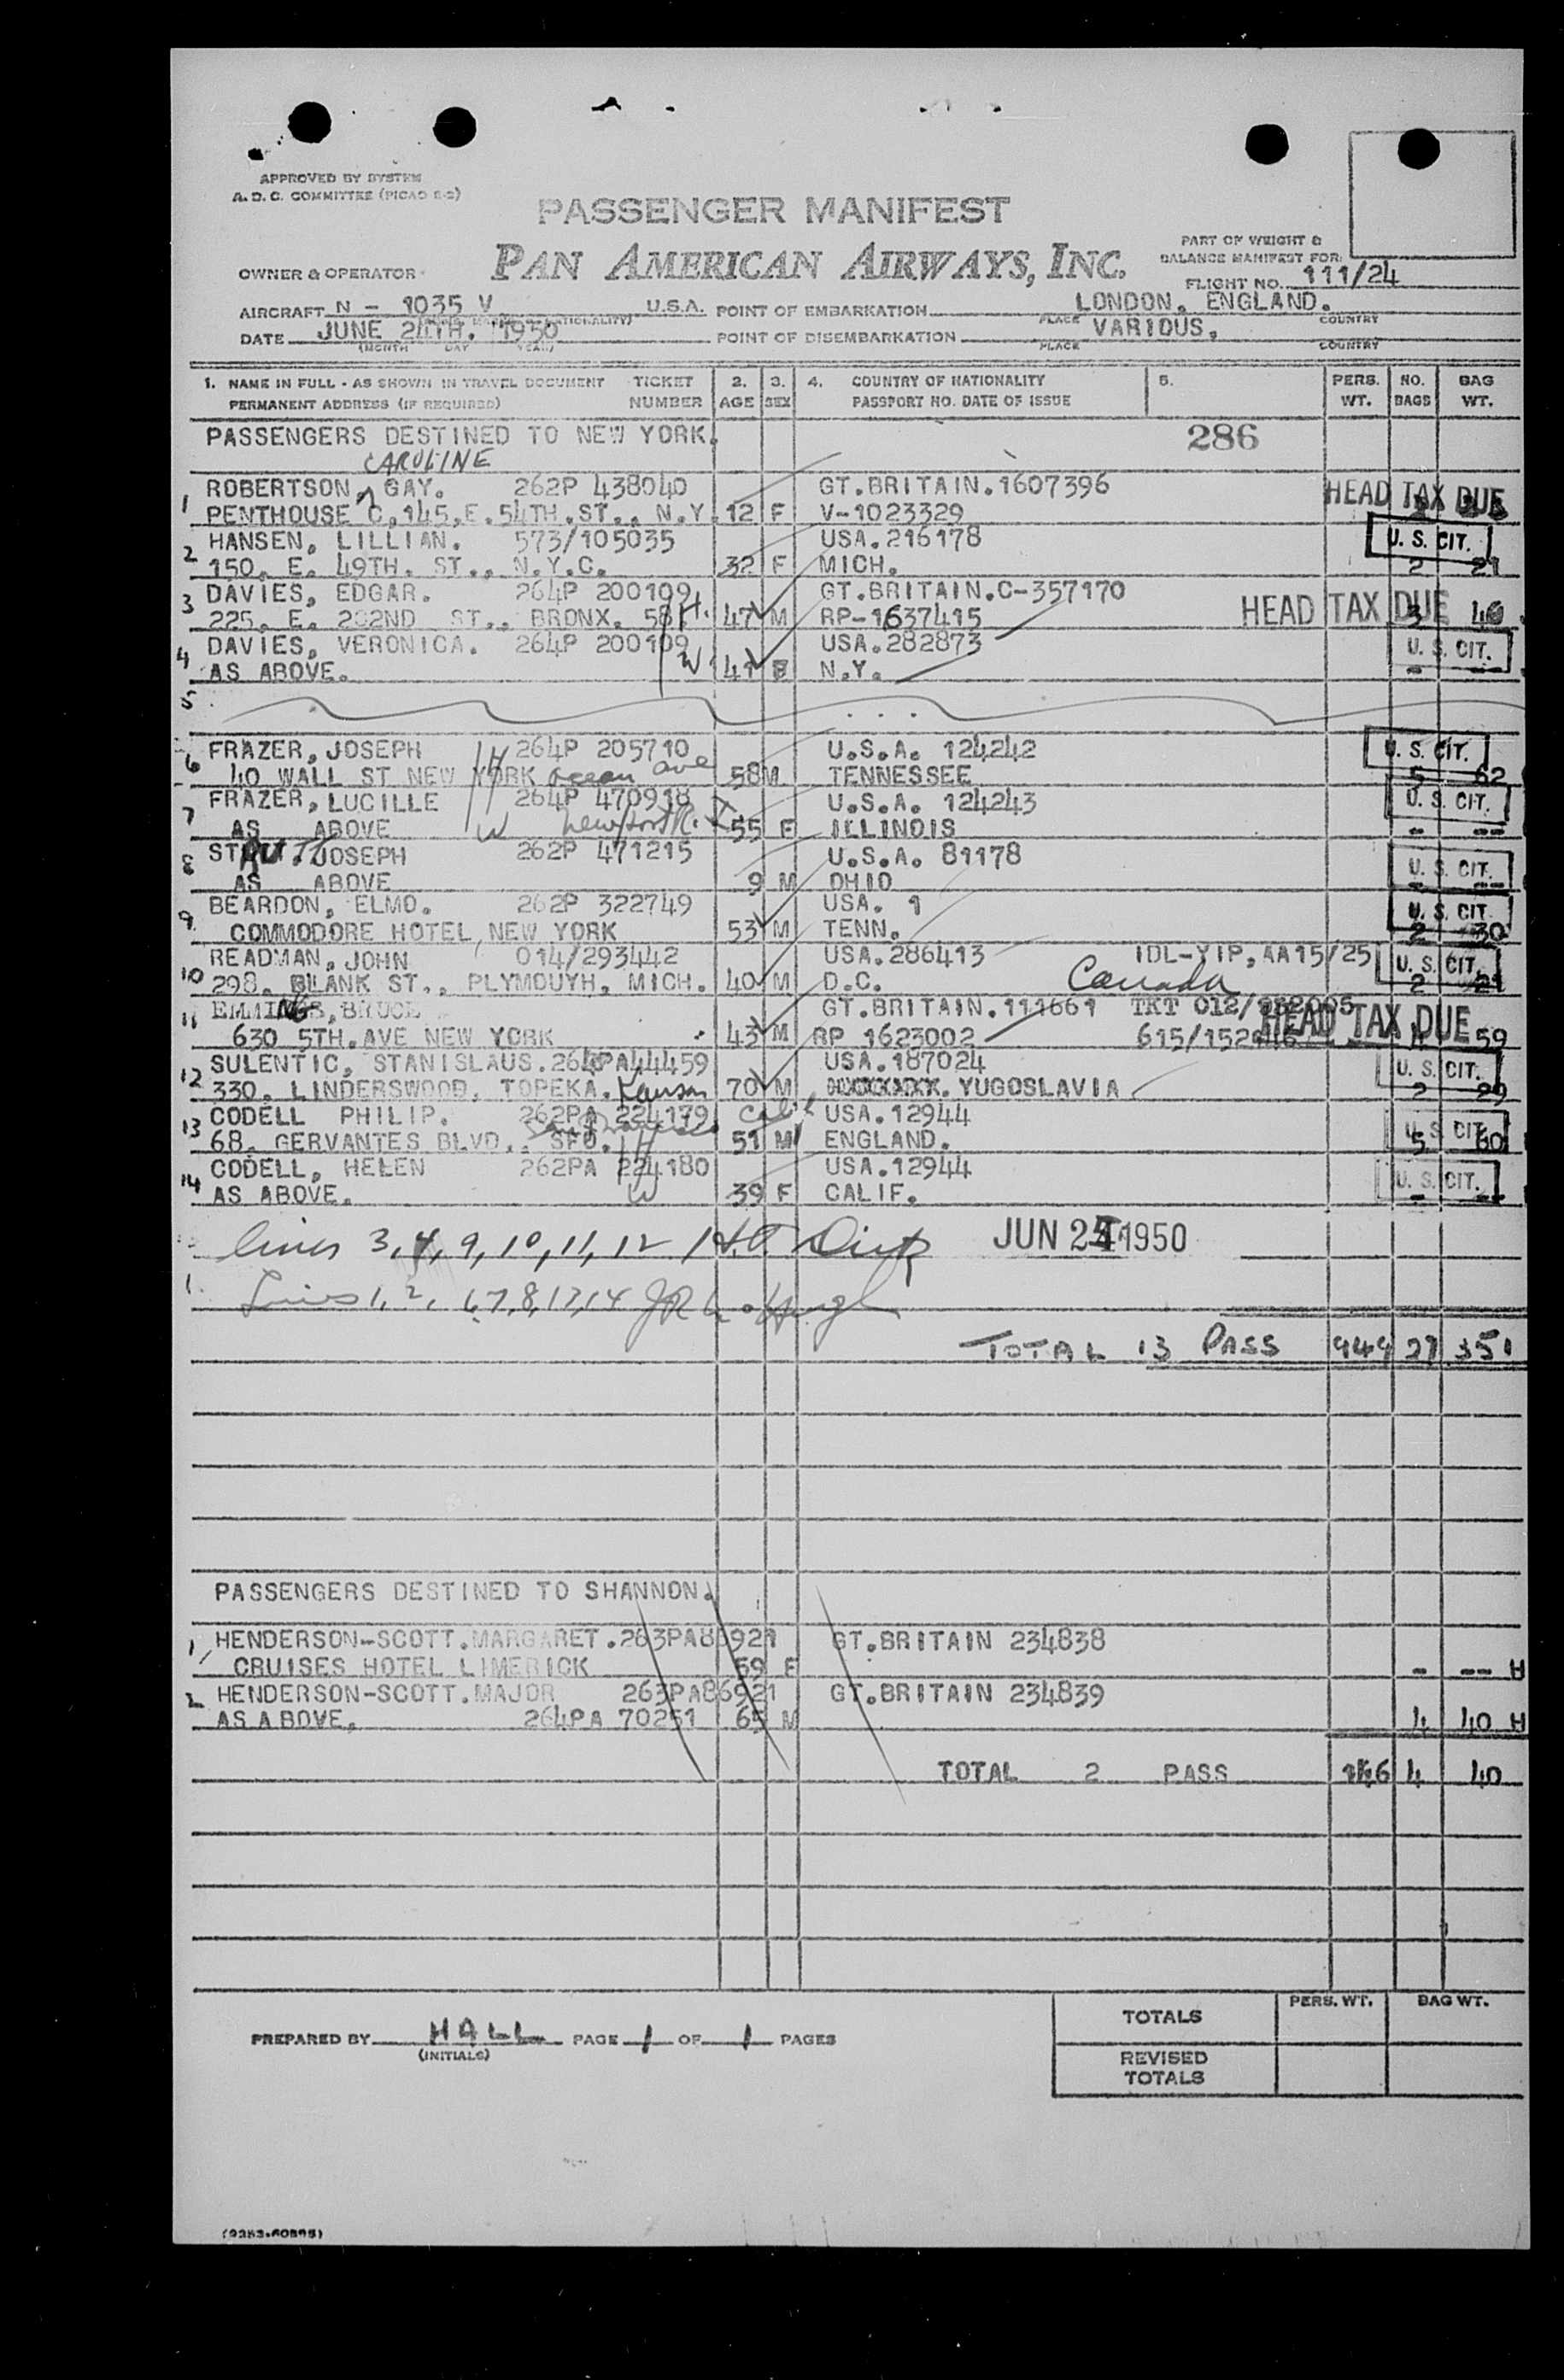 APPROVED BY SYSTEM
A. D. C. COMMITTEE (PICAO 8-2)
PASSENGER MANIFEST
PAN AMERICAN AIRWAYS, INC.
PART OF WEIGHT &
BALANCE MANIFEST FOR:
OWNER & OPERATOR
FLIGHT NO. 111/24
AIRCRAFT N - 1035 V U.S.A. POINT OF EMBARKATION LONDON, ENGLAND.
PLACE COUNTRY
DATE JUNE 24TH. 1950 POINT OF DISEMBARKATION VARIOUS,
(MONTH DAY YEAR) PLACE COUNTRY
1. NAME IN FULL - AS SHOWN IN TRAVEL DOCUMENT TICKET 2. 3. 4. COUNTRY OF NATIONALITY 5. PERS. NO. BAG
PERMANENT ADDRESS (IF REQUIRED) NUMBER AGE SEX PASSPORT NO. DATE OF ISSUE WT. BAGS WT.
PASSENGERS DESTINED TO NEW YORK. 286
CAROLINE
ROBERTSON, GAY. 262P 438040 GT.BRITAIN.1607396 HEAD TAX DUE
1 PENTHOUSE C,145,E.54TH.ST., N.Y. 12 F V-1023329
HANSEN, LILLIAN. 573/105035 USA.216178 U. S. CIT.
2 150. E. 49TH. ST., N.Y.C. 32 F MICH. 2 21
DAVIES, EDGAR. 264P 200109 GT.BRITAIN.C-357170
3 225. E. 202ND ST., BRONX. 58 H. 47 M RP-1637415 HEAD TAX DUE 3 40
DAVIES, VERONICA. 264P 200109 USA.282873 U. S. CIT.
4 AS ABOVE. W 41 F N.Y. - --
5
FRAZER, JOSEPH H 264P 205710 U.S.A. 124242 U. S. CIT.
6 40 WALL ST NEW YORK ocean ave 58 M TENNESSEE 5 62
FRAZER, LUCILLE 264P 470918 U.S.A. 124243 U. S. CIT.
7 AS ABOVE W Newport R. I 55 F ILLINOIS - --
8 STOUTT. JOSEPH 262P 471215 U.S.A. 81178 U. S. CIT.
AS ABOVE 9 M OHIO - --
BEARDON, ELMO. 262P 322749 USA. 1 U. S. CIT.
9 COMMODORE HOTEL, NEW YORK 53 M TENN. 2 30
READMAN, JOHN 014/293442 USA.286413 IDL-YIP, AA15/25 U. S. CIT.
10 298. BLANK ST., PLYMOUYH, MICH. 40 M D.C. Canada 2 21
EMMINGS, BRUCE GT.BRITAIN.111661 TKT 012/
11 630 5TH.AVE NEW YORK 43 M RP 1623002 HEAD TAX DUE 4 59
SULENTIC, STANISLAUS. 264PA44459 USA.187024 U. S. CIT.
12 330. LINDERSWOOD, TOPEKA. Kansas 70 M YUGOSLAVIA 2 29
CODELL PHILIP. 262PA 224179 Calif USA.12944 U. S. CIT.
13 68. GERVANTES BLVD., SFO. San Francisco H 51 M ENGLAND. 5 60
CODELL, HELEN 262PA 224180 USA.12944 U. S. CIT.
14 AS ABOVE. W 39 F CALIF. - --
lines 3, 4, 9, 10, 11, 12 JUN 24 1950
Lines 1, 2, 6, 7, 8, 13, 14
TOTAL 13 PASS 949 29 351
PASSENGERS DESTINED TO SHANNON.
1, HENDERSON-SCOTT.MARGARET.263PA86921 GT.BRITAIN 234838
CRUISES HOTEL LIMERICK 59 F - -- H
2 HENDERSON-SCOTT.MAJOR 263PA86921 GT.BRITAIN 234839
AS ABOVE. 264PA 70251 65 M 4 40 H
TOTAL 2 PASS 4 40
PERS. WT. BAG WT.
TOTALS
PREPARED BY HALL PAGE 1 OF 1 PAGES
(INITIALS)
REVISED
TOTALS